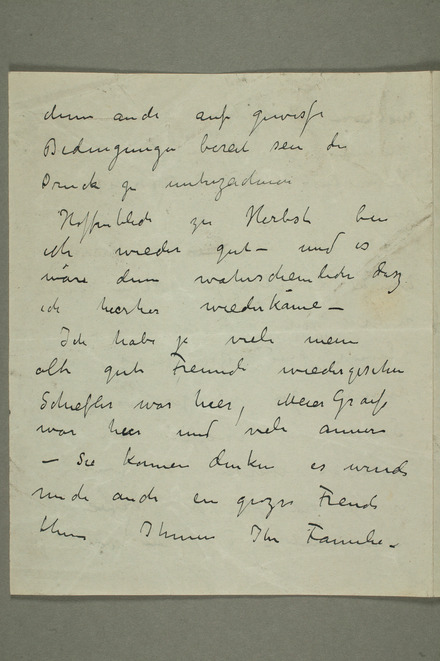 denn auch auf gewisse
Bedingungen bereit sein die
Drucke zu
Hoffentlich zu Herbst bin
ich wieder gut – und es
wäre dann wahrscheinlich dasz
ich hierher wiederkäme –
Ich habe ja viele meine
alte gute Freunde wiedergesehen
Schiefler war hier, Meier Graefe
war hier und viele andere
– Sie können denken es würde
mich auch ein grosze Freude
Ihnen Ihr Familie –